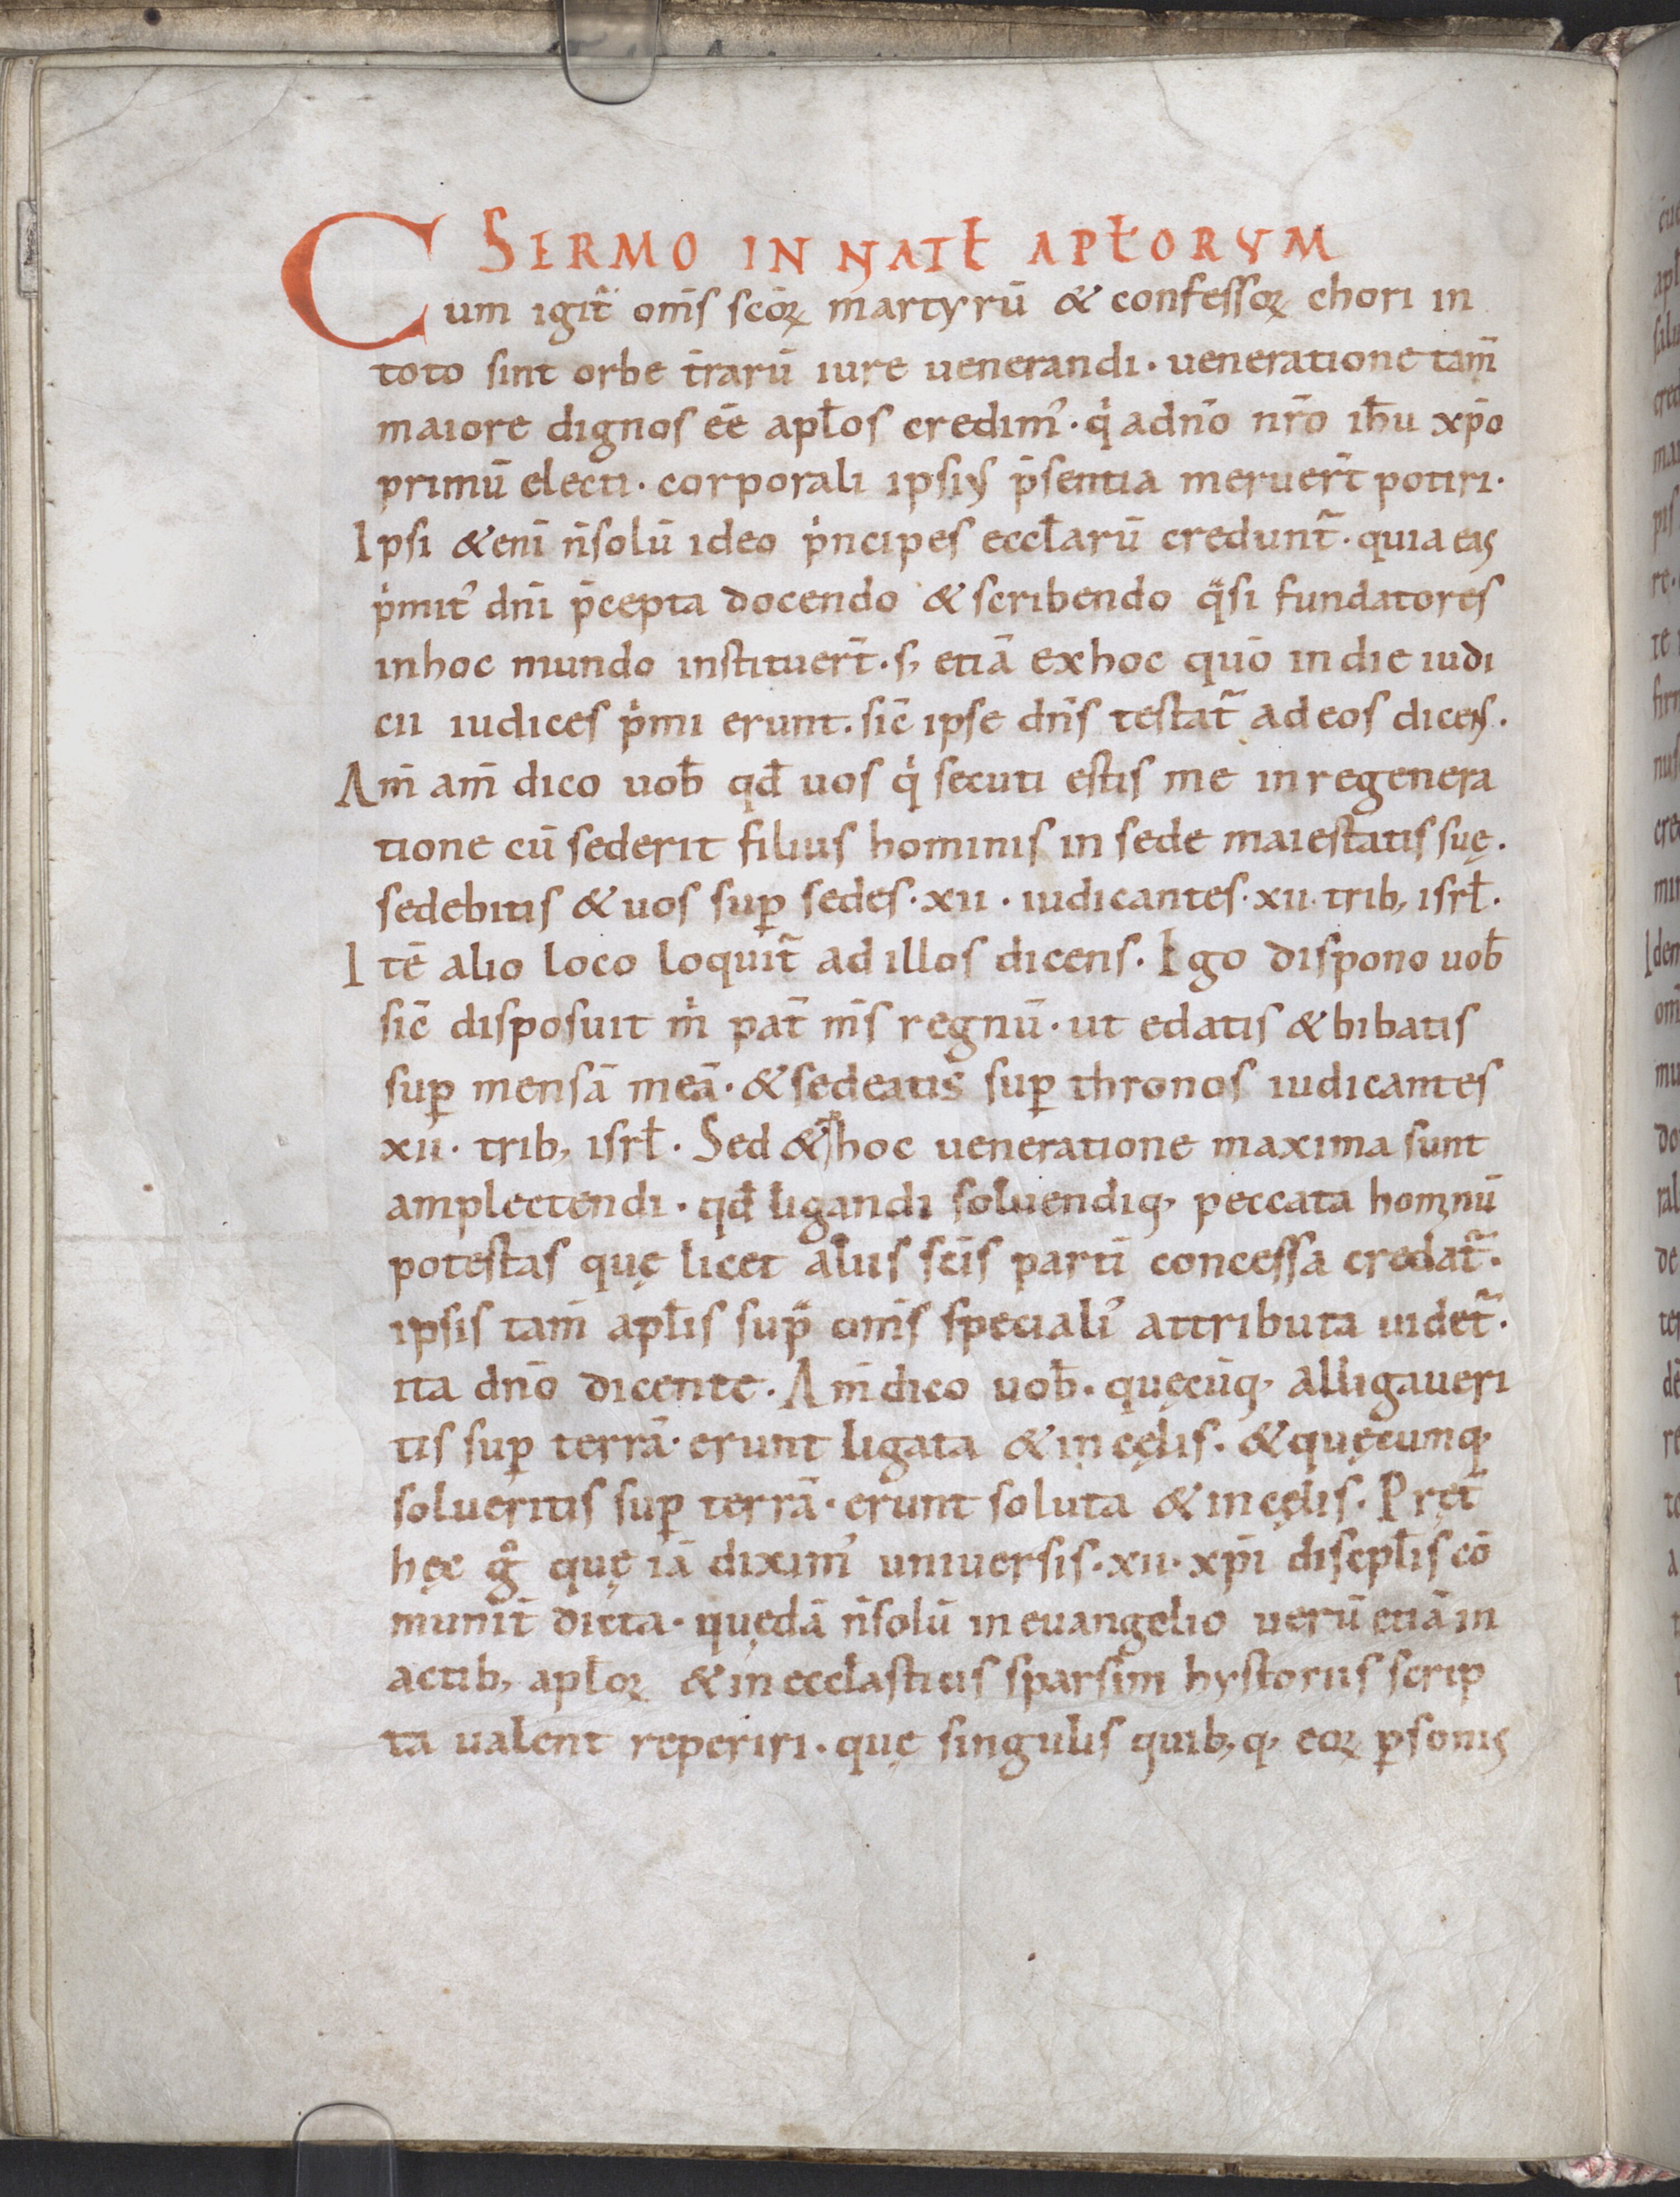 SERMO IN NATŁ APŁORVM
Cum igit᷑ om̅s sc̅oꝝ martyrū & confessoꝝ chori in
toto sint orbe t̅rarū iure uenerandi · ueneratione tam̅
maiore dignos ēē apƚos credim᾽ · q̇ adn̅o nr̅o ih̅u xp̅o
primū electi · corporali ipsius p̅sentia meruer̅t potiri ·
Ipsi &eni̅ n̅solū ideo p̍ncipes eccƚarū credunt᷑ · quia eius
p̍mit᾽ dn̅i p̅cepta docendo & scribendo qͣsi fundatores
inhoc mundo instituer̅t · s; etiā exhoc quō indie iudi
cii iudices p̍mi erunt. sic̅ ipse dn̅s testat᷑ adeos dicens.
Am̅ am̅ dico uob̅ qđ uos q̇ secuti estis me inregenera
tione cū sederit filius hominis in sede maiestatis suę.
sedebitis & uos suꝑ sedes · xii · iudicantes · xii · trib; isrƚ ·
Itē alio loco loquit᷑ ad illos dicens. Ego dispono uob̅
sic̅ disposuit m̍ pat̅ m̅s regnū · ut edatis & bibatis
suꝑ mensā meā · & sedeatis suꝑ thronos iudicantes
xii · trib; isrƚ · Sed & hoc ueneratione maxima sunt
amplectendi · qđ ligandi soluendiq; peccata hominū
potestas quę licet aliis sc̅is parti̅ concessa credat᷑ ·
ipsis tam̅ apƚis supͣ om̅s speciali᾽ attributa uidet᷑ ·
ita dn̅o dicente. Am̅ dico uob̅. quęcūq; alligaueri
tis suꝑ terrā · erunt ligata & in cęlis. & quęcumq;
solueritis suꝑ terrā · erunt soluta & in cęlis. Pręt̅
hęc g̊ quę iā dixim᾽ uniuersis · xii · xp̅i discipƚis cō
munit̅ dicta · quędā n̅solū in euangelio uerū etiā in
actib; apƚoꝝ & in eccƚasticis sparsim hystoriis scrip
ta ualent reperiri. quę singulis quib;q; eoꝝ ꝑsonis